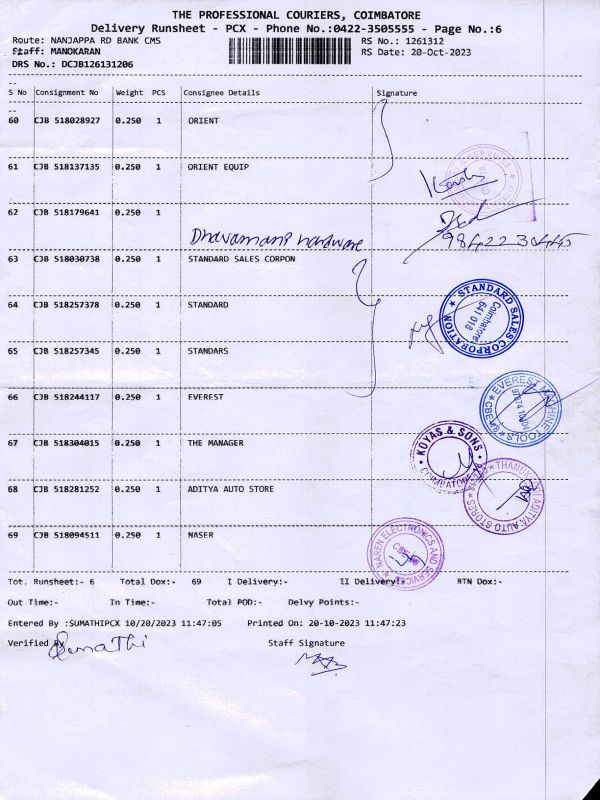 THE PROFESSIONAL COURIERS, COIMBATORE
Delivery Runsheet - PCX - Phone No.:0422-3505555 - Page No.:6
Route: NANJAPPA RD BANK CMS RS No.: 1261312
Staff: MANOKARAN RS Date: 20-Oct-2023
DRS No.: DCJB126131206
S No Consignment No Weight PCS Consignee Details Signature
60 CJB 518028927 0.250 1 ORIENT
61 CJB 518137135 0.250 1 ORIENT EQUIP
62 CJB 518179641 0.250 1
Dhavamani hardware
63 CJB 518030738 0.250 1 STANDARD SALES CORPON
64 CJB 518257378 0.250 1 STANDARD
STANDARD SALES CORPORATION
Coimbatore
641 018
65 CJB 518257345 0.250 1 STANDARS
66 CJB 518244117 0.250 1 EVEREST
EVEREST MACHINE TOOLS
67 CJB 518304015 0.250 1 THE MANAGER
KOYAS & SONS
COIMBATORE
68 CJB 518281252 0.250 1 ADITYA AUTO STORE
ADITYA AUTO STORES
69 CJB 518094511 0.250 1 NASER
NAREN ELECTRONICS AND SERVICE
Tot. Runsheet:- 6 Total Dox:- 69 I Delivery:- II Delivery:- RTN Dox:-
Out Time:- In Time:- Total POD:- Delvy Points:-
Entered By :SUMATHIPCX 10/20/2023 11:47:05 Printed On: 20-10-2023 11:47:23
Verified By Staff Signature
Sumathi